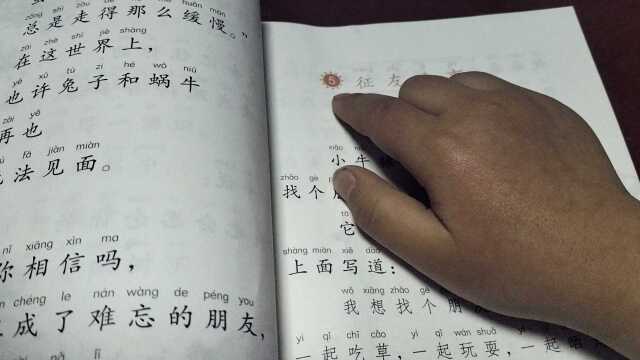 huǎn màn
总是走得那么缓慢。”
zài zhè shì jiè shàng
在这世界上，
yě xǔ tù zi hé wō niú
也许兔子和蜗牛
zài yě
再也
fǎ jiàn miàn
法见面。
nǐ xiāng xìn ma
你相信吗，
chéng le nán wàng de péng you
成了难忘的朋友，
5 征友
xiǎo
小牛
zhǎo gè
找个
tā
它
shàng miàn xiě dào
上面写道：
wǒ xiǎng zhǎo gè
我想找个朋
yì qǐ chī cǎo yì qǐ wán shuǎ yì qǐ
一起吃草，一起玩耍，一起